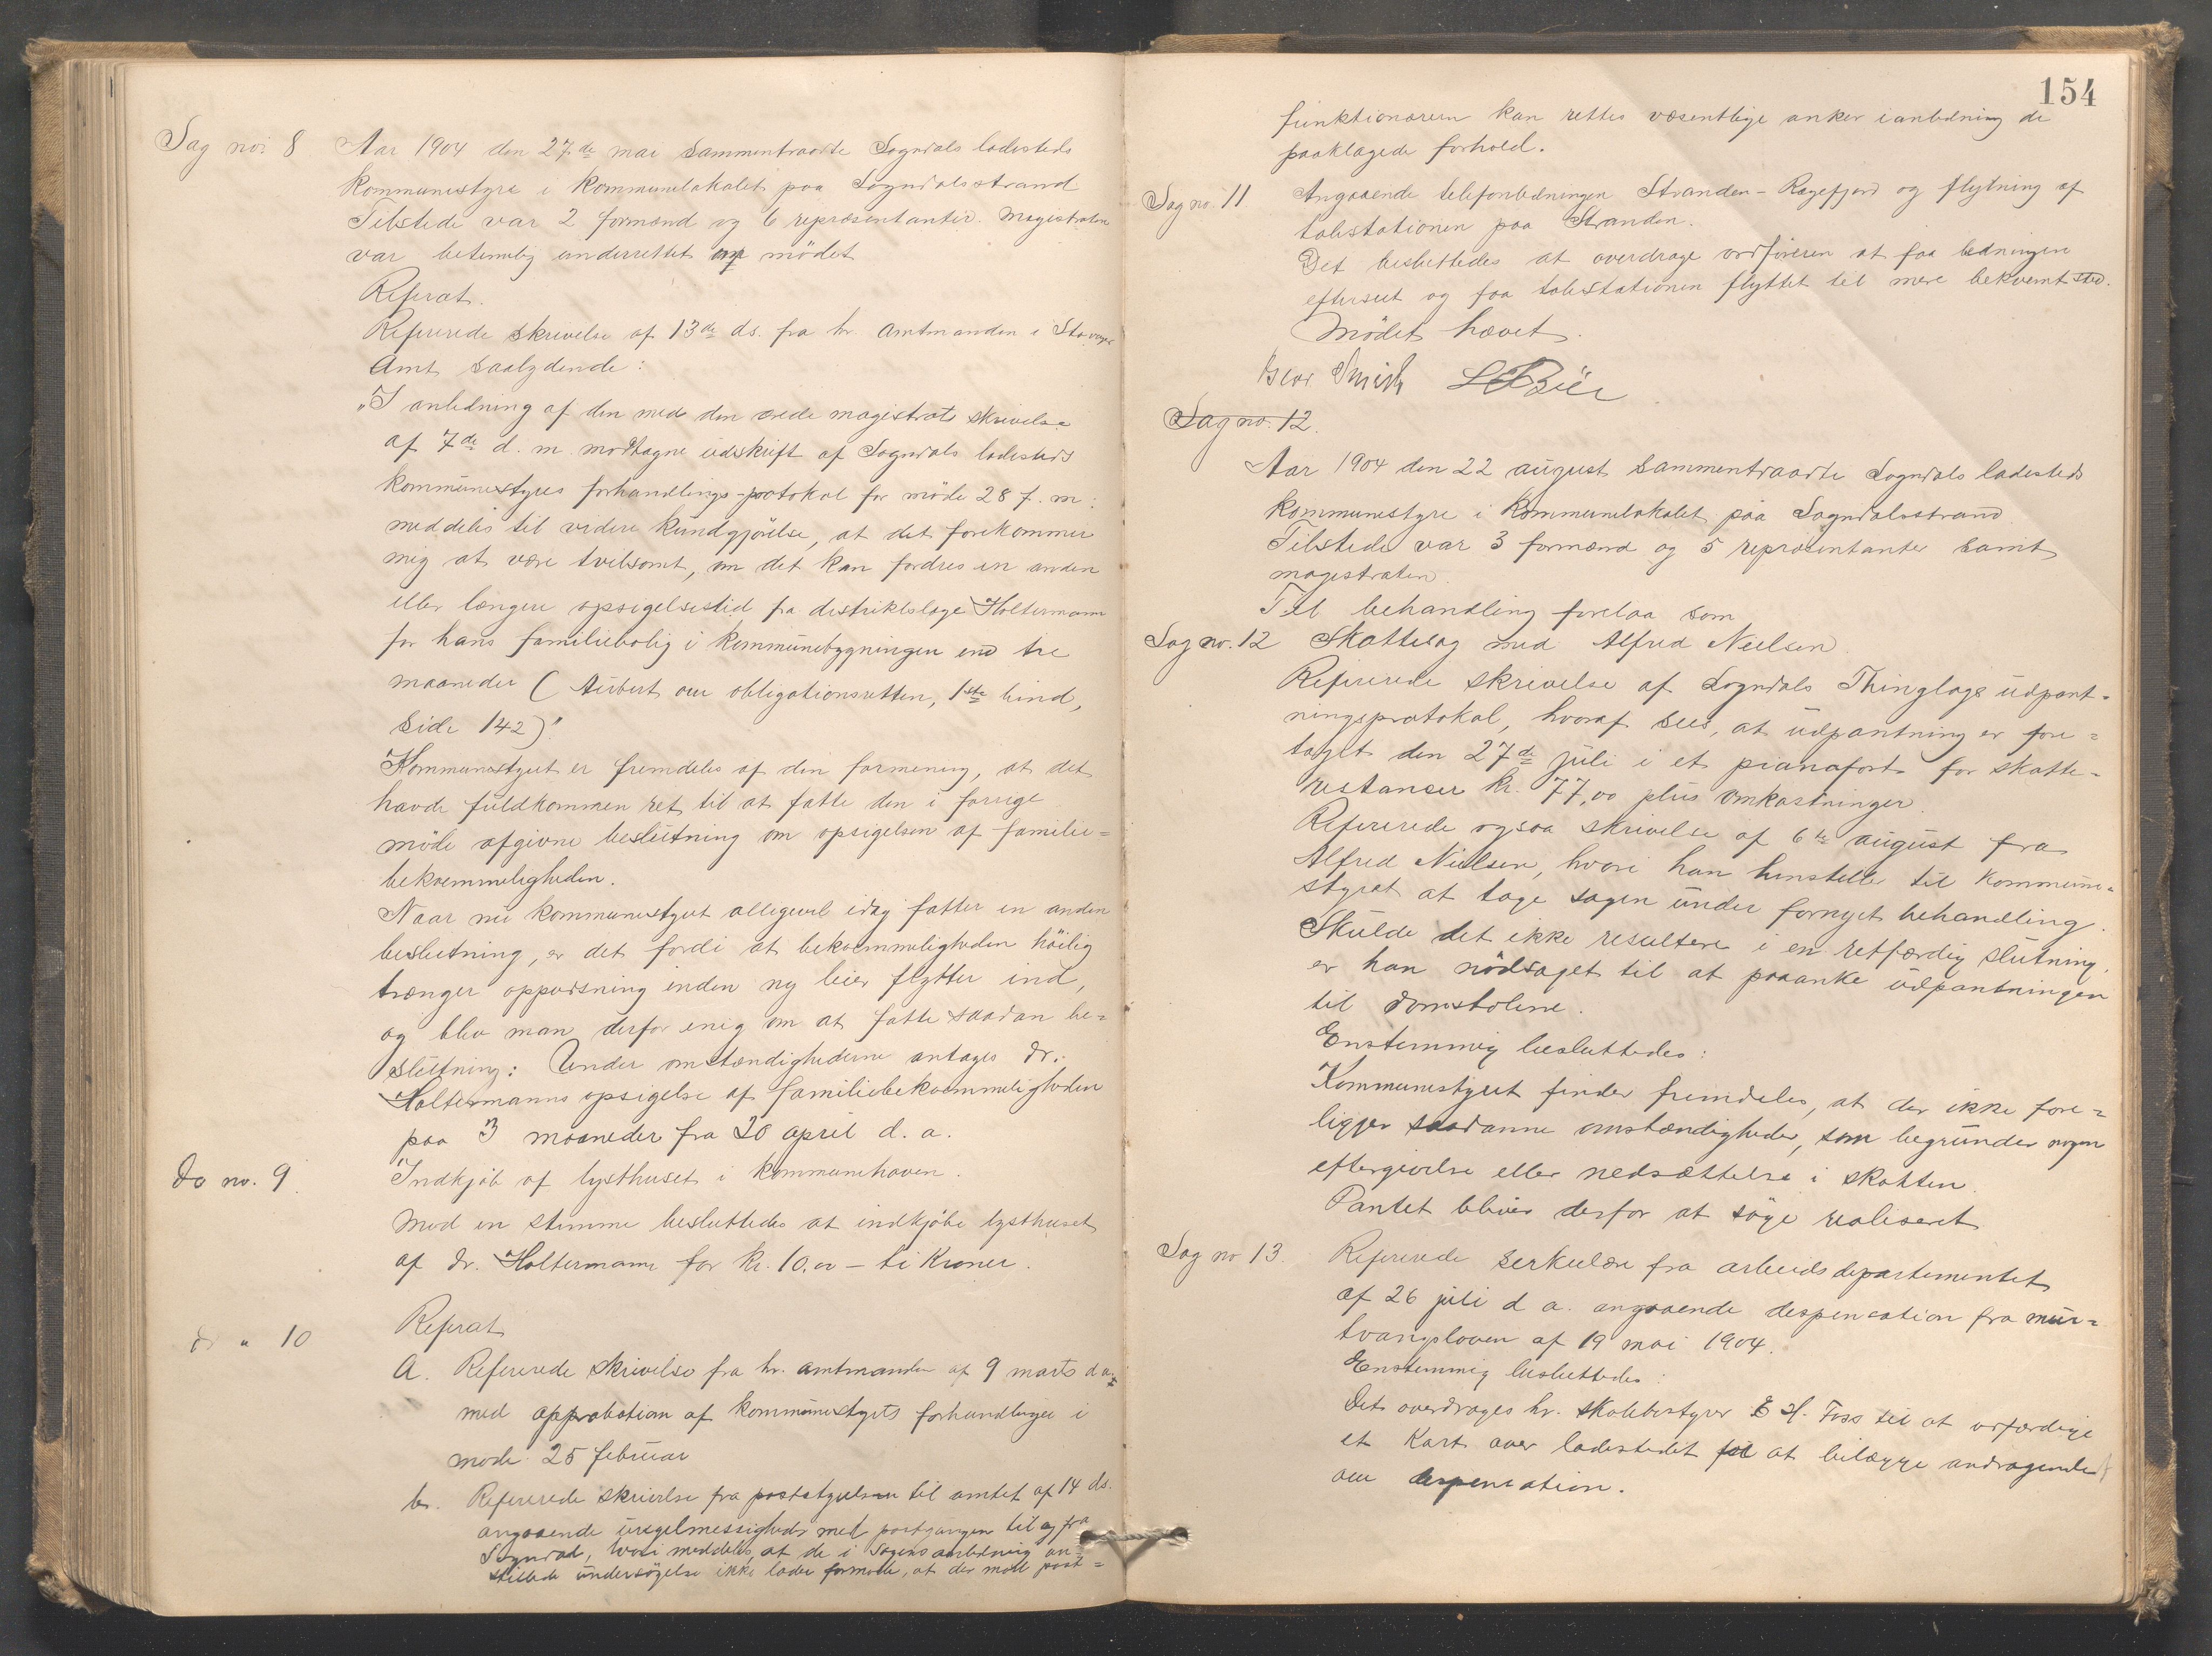 Sag no: 8 Aar 1904 den 27de mai sammentraadte Sogndals ladesteds
kommunestyre i kommunelokalet paa Sogndalsstrand
Tilstede var 2 formænd og 6 repræsentanter. Magistraten
var betimelig underrettet om mödet
Referat.
Refererede skrivelse af 13de ds. fra hr. Amtmanden i Stavanger
Amt saalydende:
"I anledning af den med den ærede magistrats skrivelse
af 7de d. m. modtagne udskrift af Sogndals ladesteds
kommunestyres forhandlings-protokol for möde 28 f. m:
meddeles til videre kundgjörelse, at det forekommer
mig at være tvilsomt, om det kan fordres en anden
eller længere opsigelsestid fra distriktslæge Holtermann
for hans familiebolig i kommunebygningen end tre
maaneder (Aubert om obligationsretten, 1ste bind,
side 142)"
Kommunestyret er fremdeles af den formening, at det
havde fuldkommen ret til at fatte den i forrige
möde afgivne beslutning om opsigelsen af familie=
bekvemmeligheden.
Naar nu kommunestyret allegevel idag fatter en anden
beslutning, er det fordi at bekvemmeligheden höilig
trænger oppudsning inden ny leier flytter ind,
og blev man derfor enig om at fatte saadan be=
slutning: Under omstændighederne antages dr.
Holtermanns opsigelse af familiebekvemmeligheden
paa 3 maaneder fra 20 april d. a.
Do no. 9. Indkjöb af lysthuset i kommunehaven.
Med en stemme besluttedes at indkjöbe lysthuset
af dr. Holtermann for kr. 10,00 - ti kroner.
Referat
do " 10
A. Refererede skrivelse fra hr. amtmanden af 9 marts d a.
med approbation af kommunestyrets forhandlinger i
möde 25 februar
b. Refererede skrivelse fra poststyrelsen til amtet af 14 ds.
angaaende uregelmessigheder med postgangen til og fra
Sogndal, hvori meddeles, at de i sagens anledning an=
stillede undersögelse ikke lader formode, at der mod post=
154
funktionærern kan rettes væsentlige anker i anledning de
paaklagede forhold.
Sag no. 11 Angaaende telefonledningen Stranden - Rægefjord og flytning af
talestationen paa Stranden.
Det besluttedes at overdrage ordföreren at faa ledningen
efterseet og faa talestationen flyttet til mere bekvemt sted.
Mödet hævet.
Smith
Sag no. 12.
Aar 1904 den 22 august sammentraadte Sogndals ladesteds
kommunestyre i kommunelokalet paa Sogndalsstrand
Tilstede var 3 formænd og 5 repræsentanter samt
magistraten.
Til behandling forelaa som
Sag no. 12 Skattesag med Alfred Nielsen.
Refererede skrivelse af Sogndals Thinglags udpant-
ningsprotokol, hvoraf sees, at udpantning er fore=
taget den 27de juli i et pianoforte for skatte-
restancer kr. 77,00 plus omkostninger.
Refererede ogsaa skrivelse af 6te august fra
Alfred Nielsen, hvori han henstiller til kommune=
styret at tage sagen under fornyet behandling.
Skulde det ikke resultere i en retfærdig slutning,
er han nödsaget til at paaanke udpantningen
til domstolene.
Enstemmig besluttedes:
Kommunestyret finder fremdeles, at der ikke fore=
ligger saadanne omstændigheder, som begrunder nogen
eftergivelse eller nedsættelse i skatten.
Pantet bliver derfor at söge realiseret
Sag no 13. Refererede serkulære fra arbeidsdepartementet
af 26 juli d a. angaaende despencation fra mur=
tvangsloven af 19 mai 1904.
Enstemmig besluttedes:
Det overdrages hr. skolebestyrer E H. Foss til at udfærdige
et Kart over ladestedet for at bilægge andragendet
om despencation.